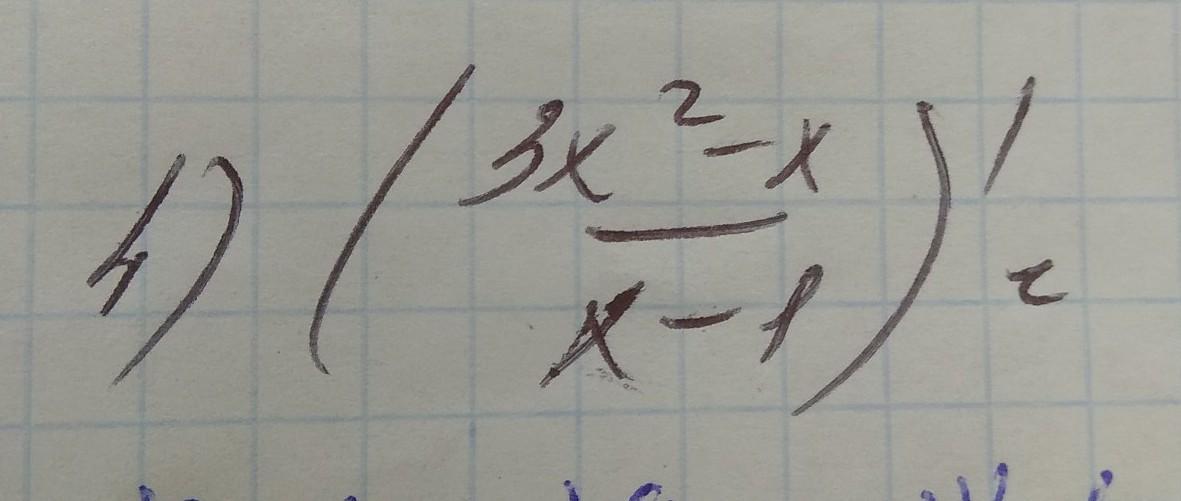 4) (3x² - x / x - 1)' =